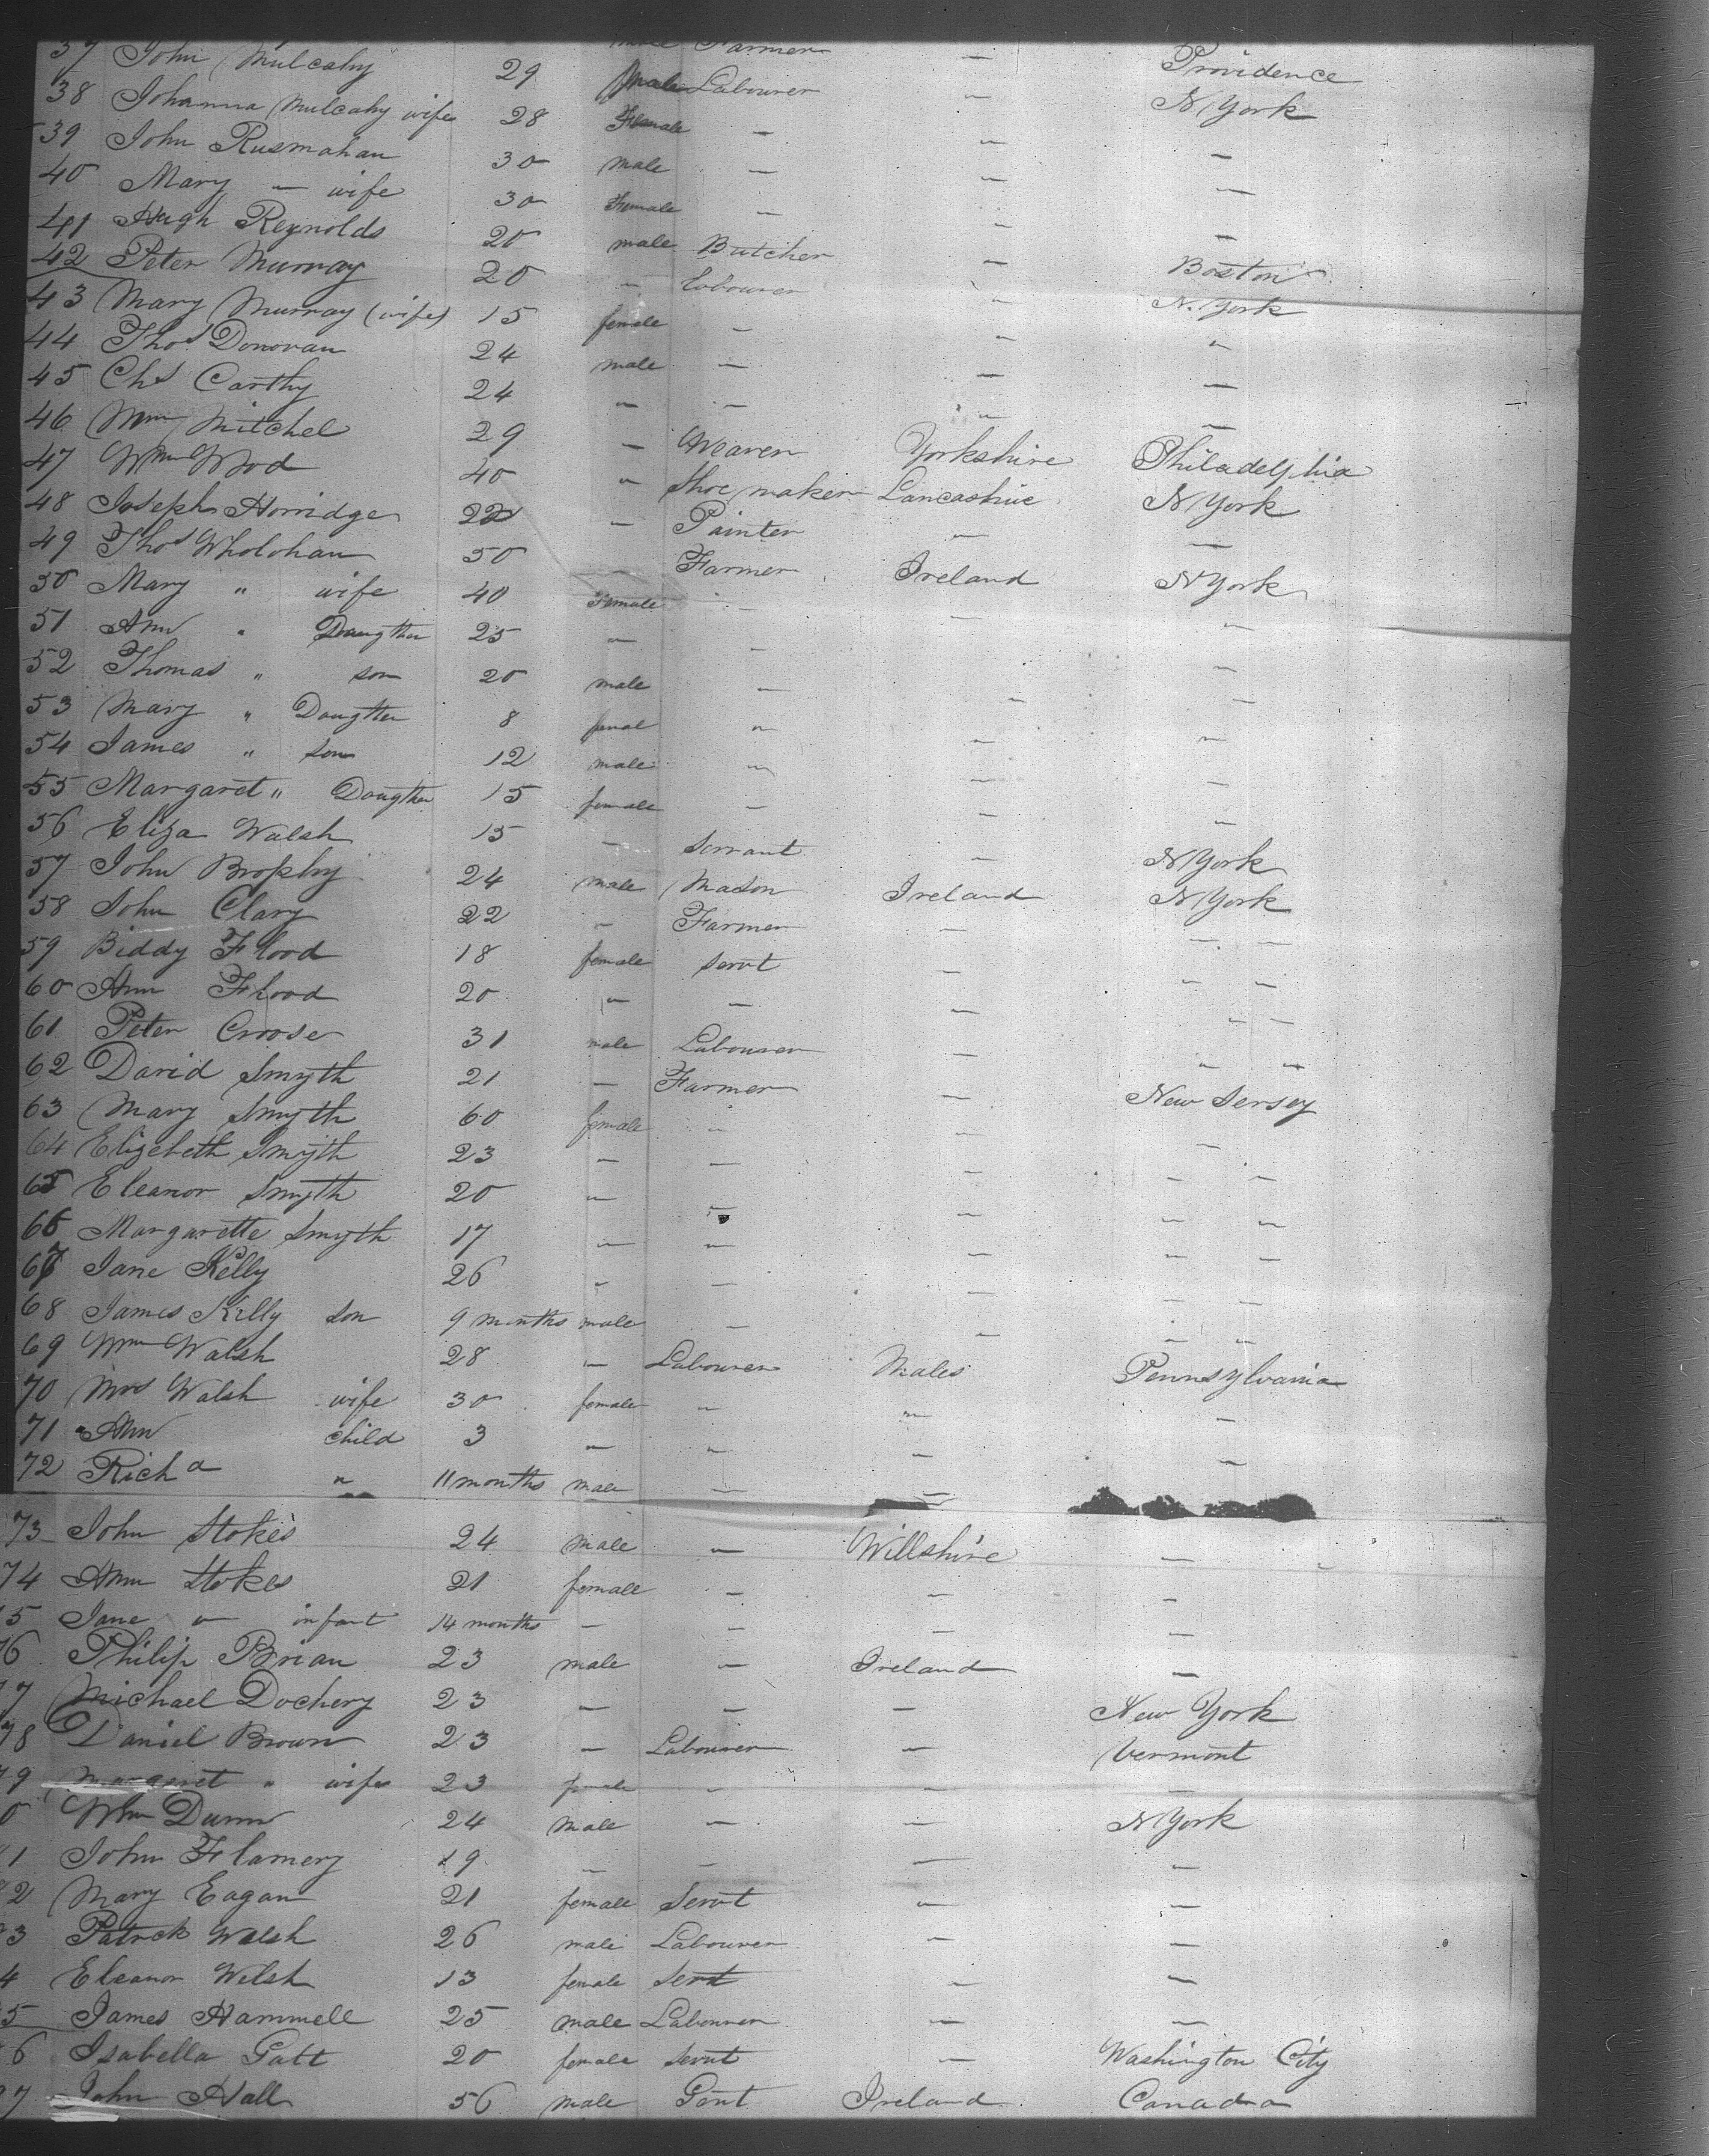 Farmer —
37 John Mulcahy 29 male Labourer — Providence
38 Johanna Mulcahy wife 28 Female — — N York
39 John Rusmahan 30 male — — —
40 Mary — wife 30 Female — — —
41 Hugh Reynolds 20 male Butcher — —
42 Peter Murray 20 " Labourer — Boston
43 Mary Murray (wife) 15 female — — N. York
44 Thos Donovan 24 male — — —
45 Chs Carthy 24 — — — —
46 Wm Mitchel 29 — Weaver Yorkshire Philadelphia
47 Wm Wod 40 " Shoe maker Lancashire N York
48 Joseph Horridge 22 — Painter — —
49 Thos Wholohan 50 — Farmer Ireland N York
50 Mary " wife 40 Female — — —
51 Ann " Daugther 25 — — —
52 Thomas " son 20 male — — —
53 Mary " Daugther 8 femal — — —
54 James " son 12 male — — —
55 Margaret " Daugther 15 female — — —
56 Eliza Walsh 15 — Servant — N York
57 John Brophy 24 male Mason Ireland N York
58 John Clary 22 — Farmer — — —
59 Biddy Flood 18 female Servt — — —
60 Ann Flood 20 " — — — —
61 Peter Croose 31 male Labourer — — —
62 David Smyth 21 — Farmer — New Jersey
63 Mary Smyth 60 female " — —
64 Elizebeth Smyth 23 — — — — —
65 Eleanor Smyth 20 — — — — —
66 Margarette Smyth 17 — — — — —
67 Jane Kelly 26 " — — — —
68 James Killy son 9 months male — — — —
69 Wm Walsh 28 — Labourer Wales Pennsylvania
70 Mrs Walsh wife 30 female " " —
71 Ann child 3 — " — —
72 Richd " 11 months male — —
73 John Stokes 24 male — Willshire —
74 Ann Stokes 21 female — — —
5 Jane " infant 14 months — — — —
76 Philip Brian 23 male — Ireland —
7 Michael Dochery 23 — — — New York
78 Daniel Brown 23 — Labourer — Vermont
79 Margaret " wife 23 female — — —
0 Wm Dunn 24 male — — N York
1 John Flamery 19 — — — —
2 Mary Eagan 21 female Servt — —
3 Patrck Walsh 26 male Labourer — —
4 Eleanor Welsh 13 female Servt — —
5 James Hammell 25 male Labourer — —
6 Isabella Gatt 20 female Servt — Washington City
7 John Hall 56 male Gent Ireland Canada